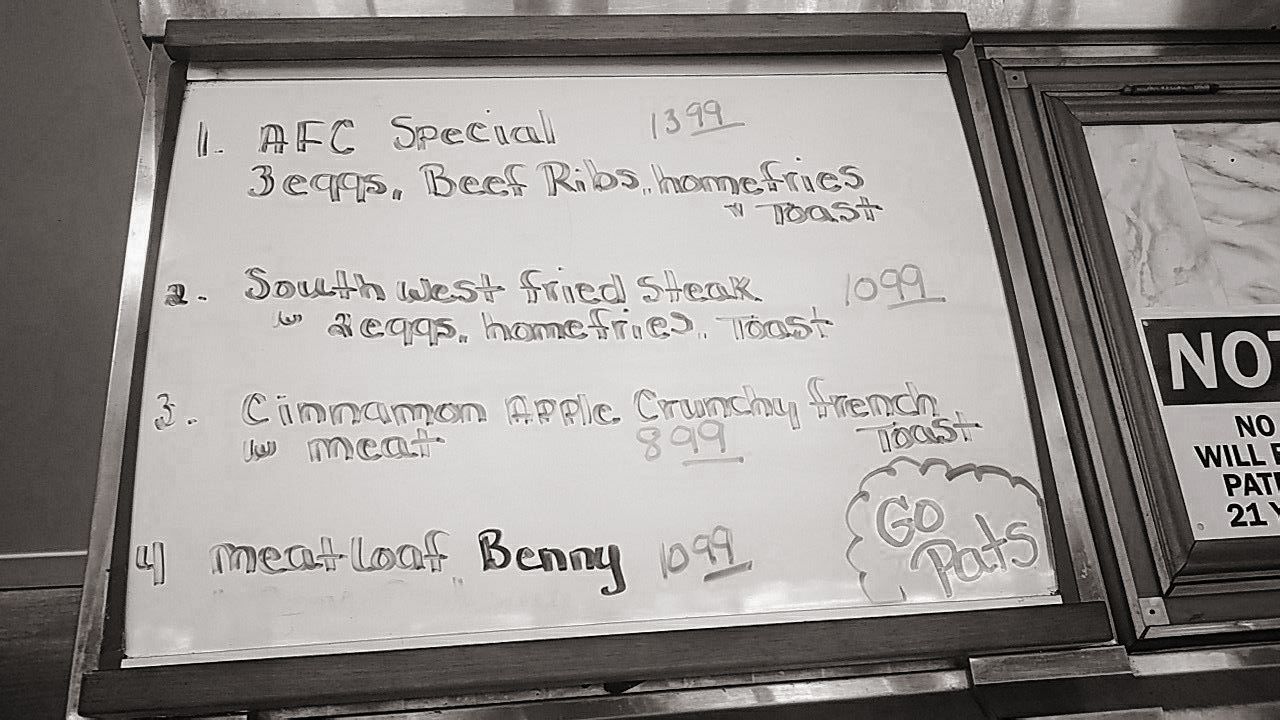 1. AFC Special 13 99
3 eggs, Beef Ribs, homefries
w Toast
2. South west fried steak 10 99
w 2 eggs, homefries, Toast
3. Cinnamon Apple Crunchy french
w meat 8 99 Toast
4) meatloaf Benny 10 99
Go
Pats
NO
WILL
21